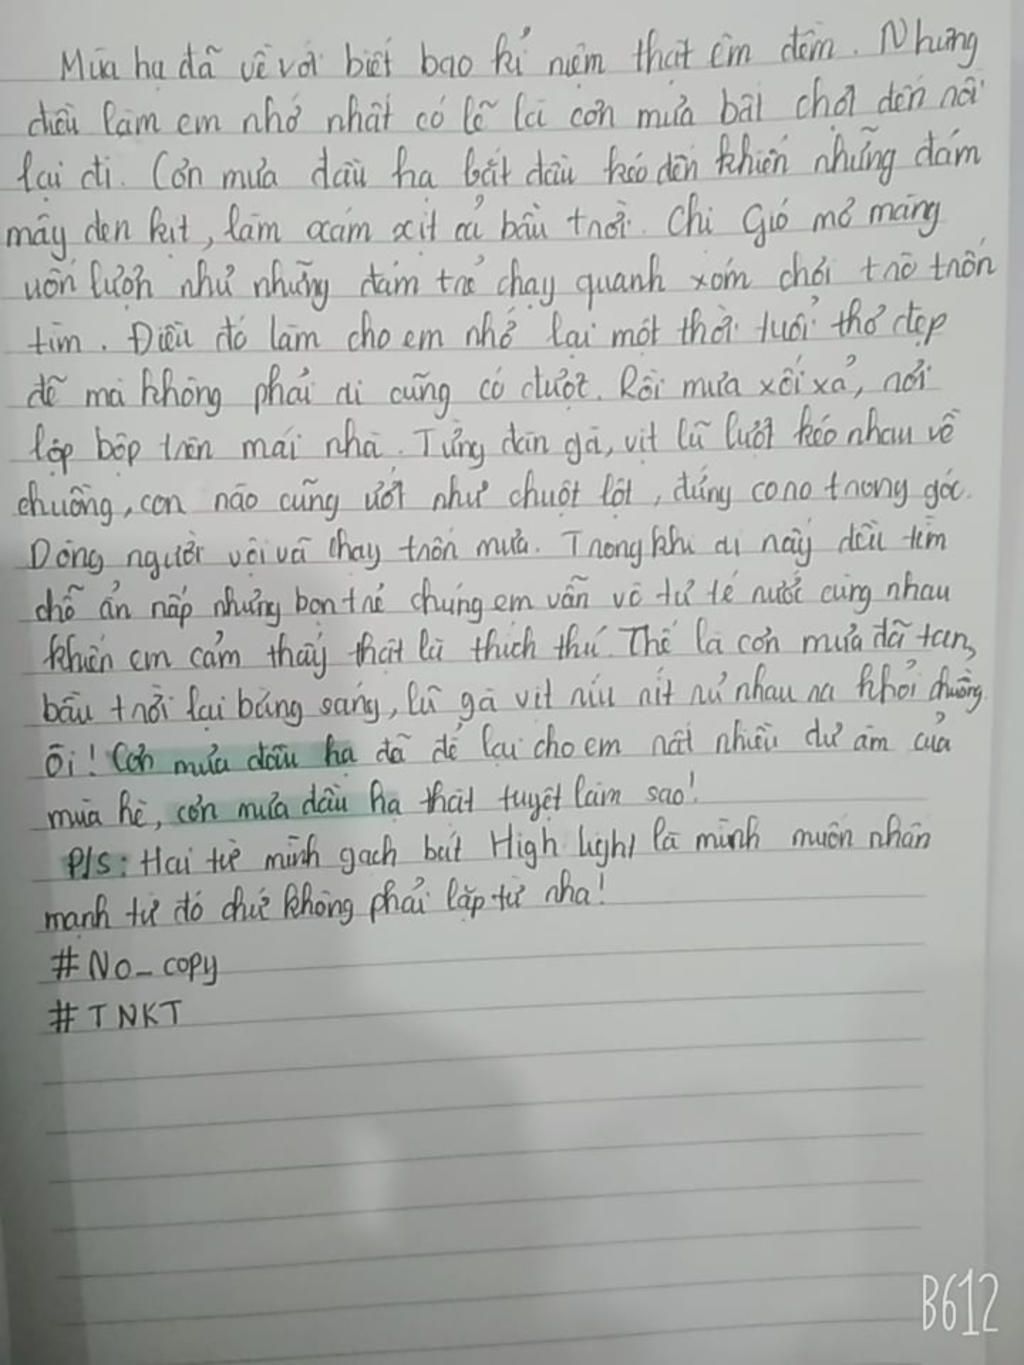 Mùa hạ đã về với biết bao kỉ niệm thật êm đềm. Nhưng
điều làm em nhớ nhất có lẽ là cơn mưa bất chợt đến rồi
lại đi. Cơn mưa đầu hạ bắt đầu kéo đến khiến những đám
mây đen kịt, làm xám xịt cả bầu trời. Chị Gió mơ màng
uốn lượn như những đám trẻ chạy quanh xóm chơi trò trốn
tìm. Điều đó làm cho em nhớ lại một thời tuổi thơ đẹp
đẽ mà không phải ai cũng có được. Rồi mưa xối xả, rơi
lộp bộp trên mái nhà. Từng đàn gà, vịt lũ lượt kéo nhau về
chuồng, con nào cũng ướt như chuột lột, đứng co ro trong góc.
Dòng người vội vã chạy trốn mưa. Trong khi ai nấy đều tìm
chỗ ẩn nấp nhưng bọn trẻ chúng em vẫn vô tư té nước cùng nhau
khiến em cảm thấy thật là thích thú. Thế là cơn mưa đã tan,
bầu trời lại bừng sáng, lũ gà vịt ríu rít rủ nhau ra khỏi chuồng.
Ôi! Cơn mưa đầu hạ đã để lại cho em rất nhiều dư âm của
mùa hè, cơn mưa đầu hạ thật tuyệt làm sao!
P/S: Hai từ mình gạch bút High light là mình muốn nhấn
mạnh từ đó chứ không phải lặp từ nha!
#No_copy
#TNKT
B612